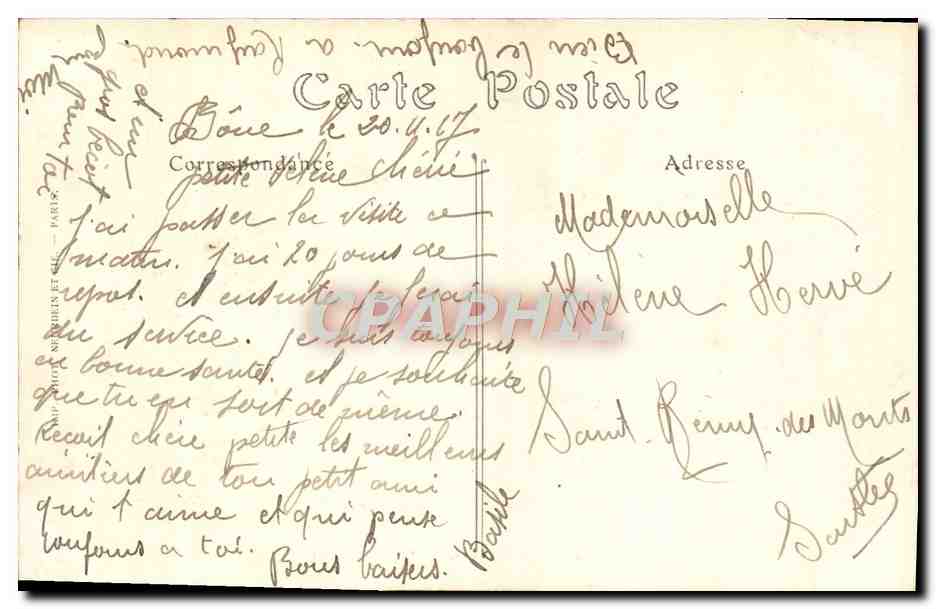 Bien le bonjour a Raymond.
Carte Postale
Bône le 20.11.17
Correspondance
Adresse
petite Hélène chérie
j'ai passer la visite ce
matin. j'ai 20 jours de
repos. et ensuite je ferai
du service. je suis toujours
en bonne santé. et je souhaite
que tu en soit de même.
Recoit chère petite les meilleurs
amitiers de ton petit ami
qui t'aime et qui pense
toujours a toi.
Bons baisers.
Basile
et un
gros
pour
moi
Mademoiselle
Hélène Hervé
Saint-Rémy-des Monts
Sarthe
IMP. PHOT. NEURDEIN ET CIE. — PARIS.
CPAPHIL